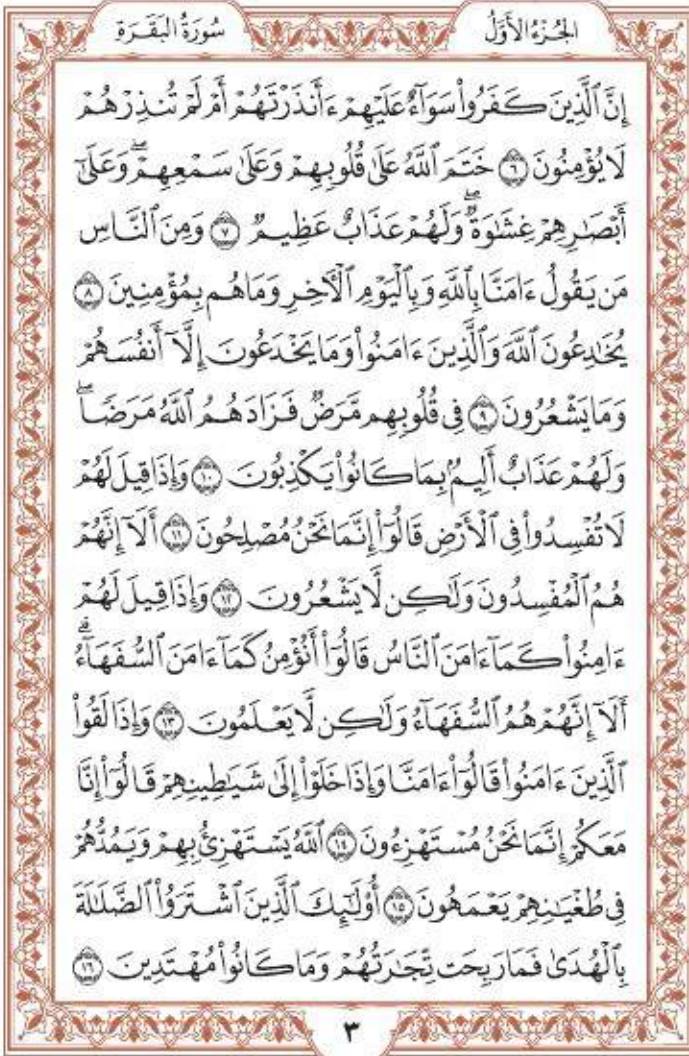 الجُزْءُ الأَوَّلُ
سُورَةُ البَقَرَةِ
إِنَّ ٱلَّذِينَ كَفَرُوا۟ سَوَآءٌ عَلَيْهِمْ ءَأَنذَرْتَهُمْ أَمْ لَمْ تُنذِرْهُمْ
لَا يُؤْمِنُونَ ﴿٦﴾ خَتَمَ ٱللَّهُ عَلَىٰ قُلُوبِهِمْ وَعَلَىٰ سَمْعِهِمْ ۖ وَعَلَىٰٓ
أَبْصَٰرِهِمْ غِشَٰوَةٌ ۖ وَلَهُمْ عَذَابٌ عَظِيمٌ ﴿٧﴾ وَمِنَ ٱلنَّاسِ
مَن يَقُولُ ءَامَنَّا بِٱللَّهِ وَبِٱلْيَوْمِ ٱلْـَٔاخِرِ وَمَا هُم بِمُؤْمِنِينَ ﴿٨﴾
يُخَٰدِعُونَ ٱللَّهَ وَٱلَّذِينَ ءَامَنُوا۟ وَمَا يَخْدَعُونَ إِلَّآ أَنفُسَهُمْ
وَمَا يَشْعُرُونَ ﴿٩﴾ فِى قُلُوبِهِم مَّرَضٌ فَزَادَهُمُ ٱللَّهُ مَرَضًا ۖ
وَلَهُمْ عَذَابٌ أَلِيمٌۢ بِمَا كَانُوا۟ يَكْذِبُونَ ﴿١٠﴾ وَإِذَا قِيلَ لَهُمْ
لَا تُفْسِدُوا۟ فِى ٱلْأَرْضِ قَالُوٓا۟ إِنَّمَا نَحْنُ مُصْلِحُونَ ﴿١١﴾ أَلَآ إِنَّهُمْ
هُمُ ٱلْمُفْسِدُونَ وَلَٰكِن لَّا يَشْعُرُونَ ﴿١٢﴾ وَإِذَا قِيلَ لَهُمْ
ءَامِنُوا۟ كَمَآ ءَامَنَ ٱلنَّاسُ قَالُوٓا۟ أَنُؤْمِنُ كَمَآ ءَامَنَ ٱلسُّفَهَآءُ ۗ
أَلَآ إِنَّهُمْ هُمُ ٱلسُّفَهَآءُ وَلَٰكِن لَّا يَعْلَمُونَ ﴿١٣﴾ وَإِذَا لَقُوا۟
ٱلَّذِينَ ءَامَنُوا۟ قَالُوٓا۟ ءَامَنَّا وَإِذَا خَلَوْا۟ إِلَىٰ شَيَٰطِينِهِمْ قَالُوٓا۟ إِنَّا
مَعَكُمْ إِنَّمَا نَحْنُ مُسْتَهْزِءُونَ ﴿١٤﴾ ٱللَّهُ يَسْتَهْزِئُ بِهِمْ وَيَمُدُّهُمْ
فِى طُغْيَٰنِهِمْ يَعْمَهُونَ ﴿١٥﴾ أُو۟لَٰٓئِكَ ٱلَّذِينَ ٱشْتَرَوُا۟ ٱلضَّلَٰلَةَ
بِٱلْهُدَىٰ فَمَا رَبِحَت تِّجَٰرَتُهُمْ وَمَا كَانُوا۟ مُهْتَدِينَ ﴿١٦﴾
٣